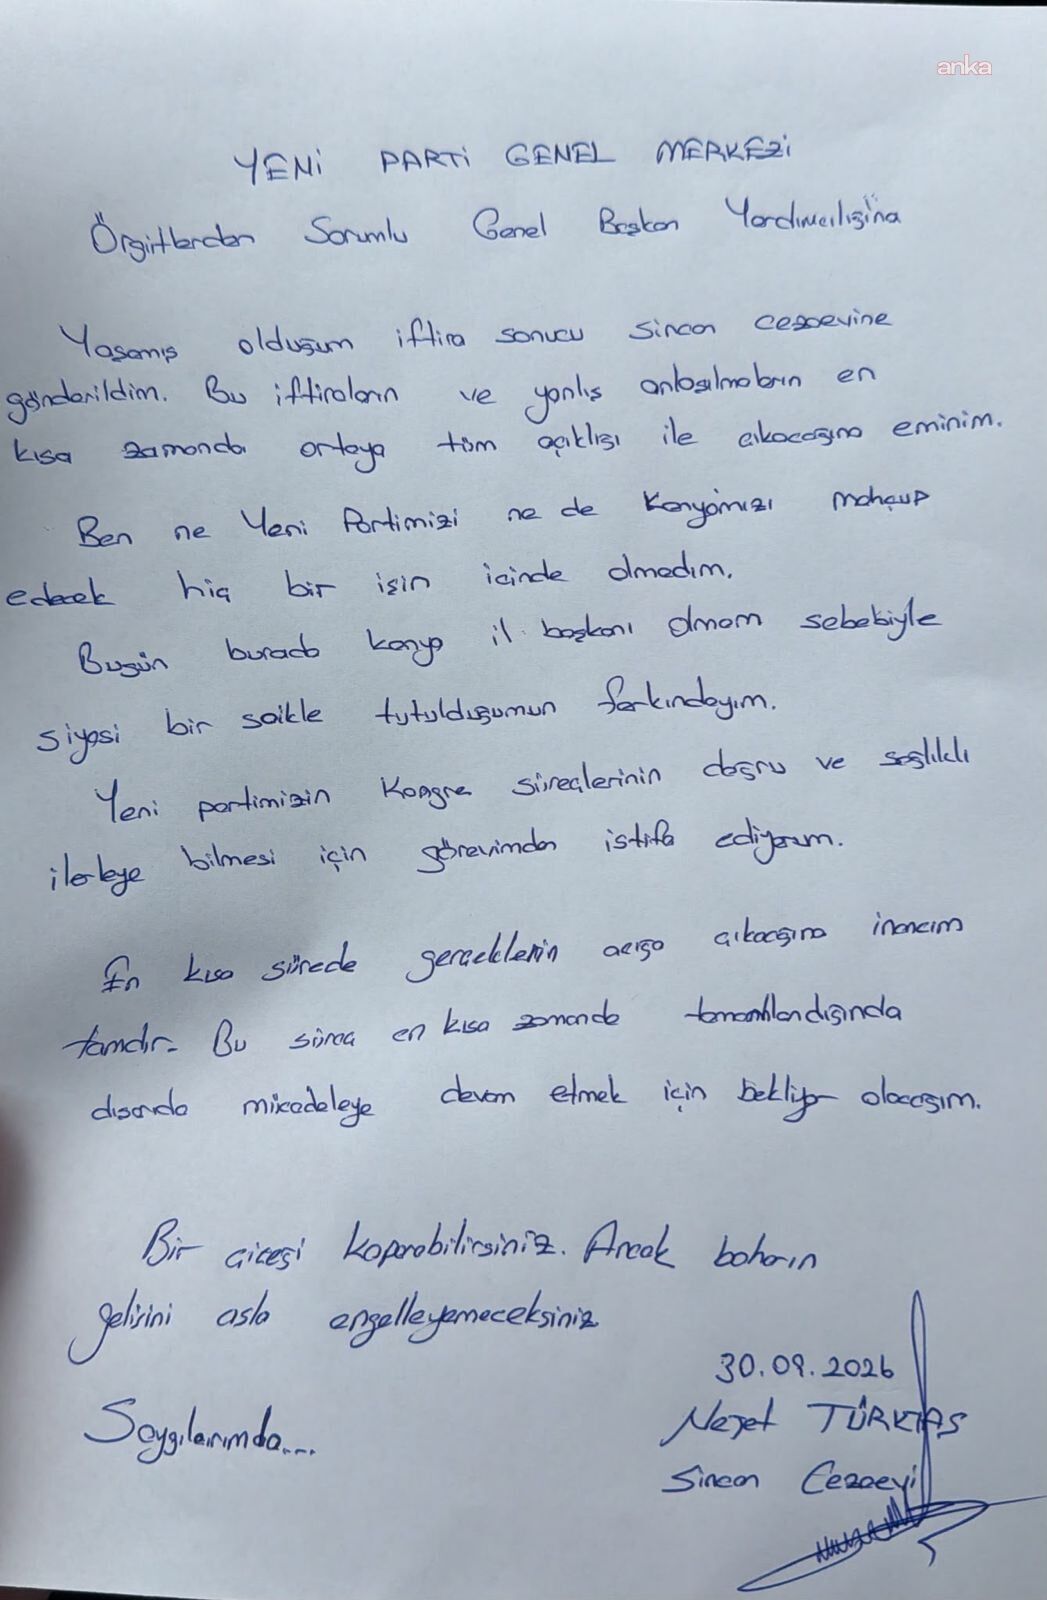 anka
YENİ PARTİ GENEL MERKEZİ
Örgütlerden Sorumlu Genel Başkan Yardımcılığı'na
Yaşamış olduğum iftira sonucu Sincan cezaevine
gönderildim. Bu iftiraların ve yanlış anlaşılmaların en
kısa zamanda ortaya tüm açıklığı ile çıkacağına eminim.
Ben ne Yeni Partimizi ne de Konyamızı mahçup
edecek hiç bir işin içinde olmadım.
Bugün burada Konya il başkanı olmam sebebiyle
siyasi bir saikle tutulduğumun farkındayım.
Yeni partimizin Kongre süreçlerinin doğru ve sağlıklı
ilerleye bilmesi için görevimden istifa ediyorum.
En kısa sürede gerçeklerin açığa çıkacağına inancım
tamdır. Bu süreç en kısa zamanda tamamlandığında
dışarıda mücadeleye devam etmek için bekliyor olacağım.
Bir çiçeği koparabilirsiniz. Ancak baharın
gelişini asla engelleyemeceksiniz
30.09.2026
Saygılarımda....
Neşet TÜRKTAŞ
Sincan Cezaevi